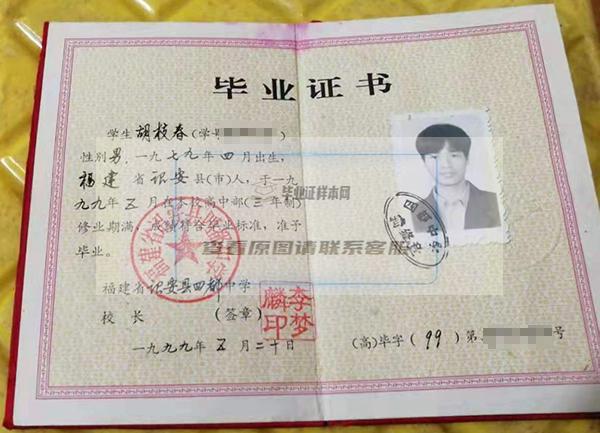 毕业证书
学生 胡枝春 (学号          )
性别男,一九七九年 四月出生,
福建 省 诏安 县(市)人,于一九
九九年 五 月在本校高中部(三年制)
修业期满,成绩符合毕业标准,准予
毕业。
福建省诏安县四都中学
校 长 (签章)
李梦麟印
一九九九年 五 月 二十日
(高)毕字( 99 )第          号
毕业证样本网
查看原图请联系客服